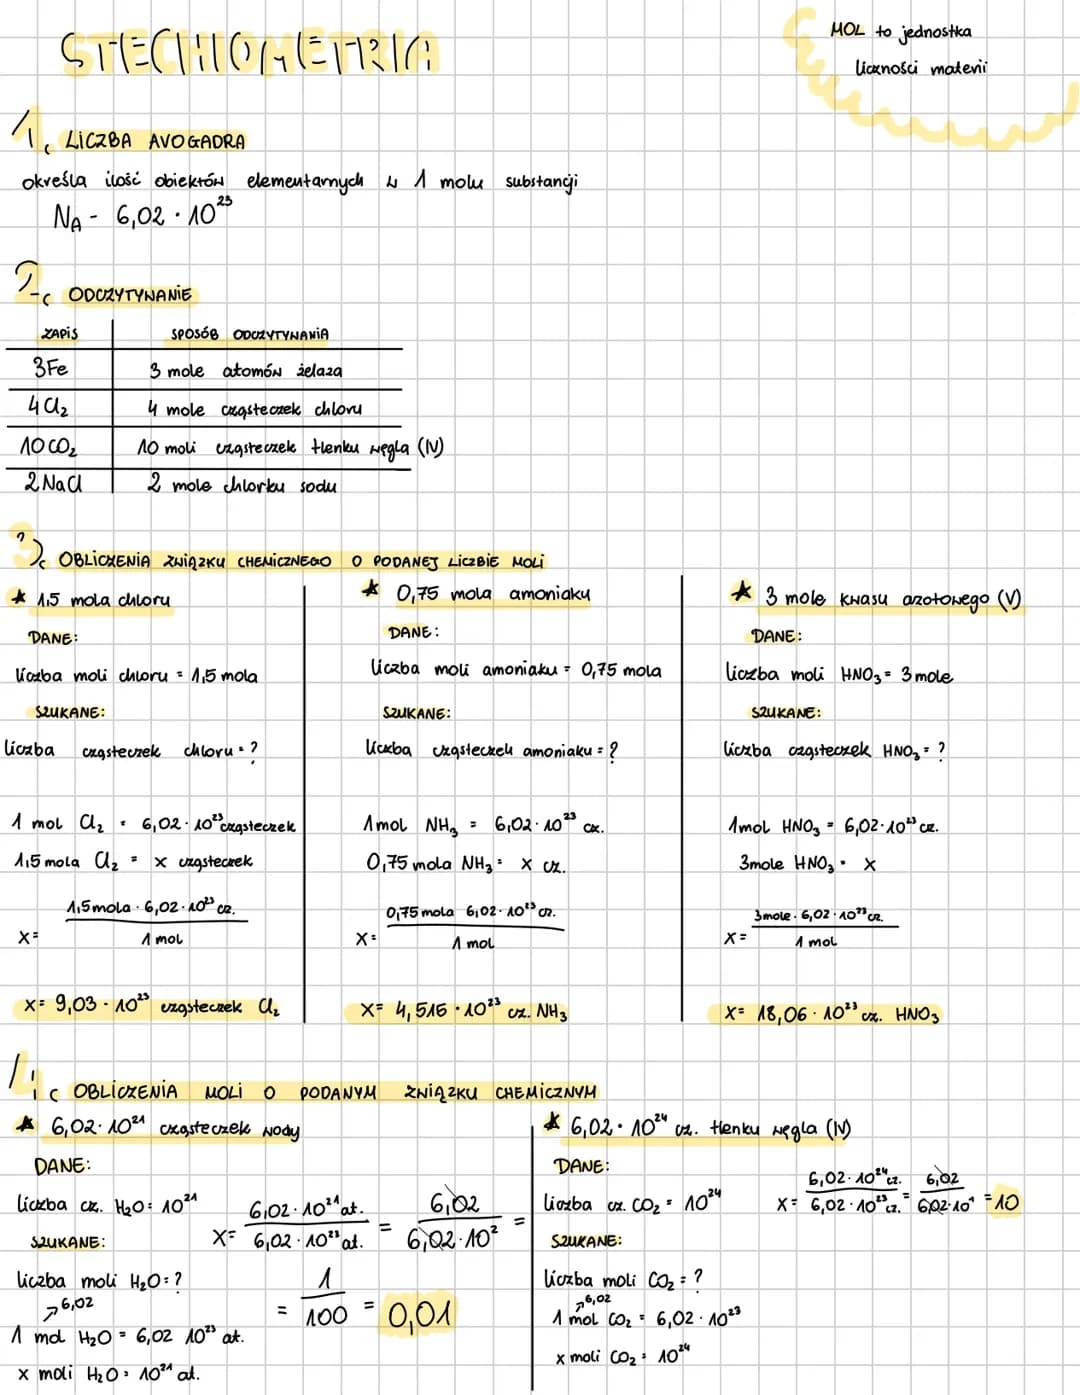 STECHIOMETRIA
MOL to jednostka
liczności materii
1. LICZBA AVOGADRA
określa ilość obiektów elementarnych w 1 molu substancji
N_A - 6,02 · 10²³
2. ODCZYTYWANIE
ZAPIS SPOSÓB ODCZYTYWANIA
3Fe 3 mole atomów żelaza
4Cl₂ 4 mole cząsteczek chloru
10CO₂ 10 moli cząsteczek tlenku węgla (IV)
2NaCl 2 mole chlorku sodu
3. OBLICZENIA ZWIĄZKU CHEMICZNEGO O PODANEJ LICZBIE MOLI
* 1,5 mola chloru
DANE:
liczba moli chloru = 1,5 mola
SZUKANE:
liczba cząsteczek chloru = ?
1 mol Cl₂ = 6,02 · 10²³ cząsteczek
1,5 mola Cl₂ = x cząsteczek
x = 1,5mola · 6,02 · 10²³ cz. / 1 mol
x = 9,03 · 10²³ cząsteczek Cl₂
* 0,75 mola amoniaku
DANE:
liczba moli amoniaku = 0,75 mola
SZUKANE:
liczba cząsteczek amoniaku = ?
1mol NH₃ = 6,02 · 10²³ cz.
0,75 mola NH₃ = x cz.
x = 0,75 mola 6,02 · 10²³ cz. / 1 mol
x = 4,515 · 10²³ cz. NH₃
* 3 mole kwasu azotowego (V)
DANE:
liczba moli HNO₃ = 3 mole
SZUKANE:
liczba cząsteczek HNO₃ = ?
1mol HNO₃ = 6,02 · 10²³ cz.
3mole HNO₃ = x
x = 3mole · 6,02 · 10²³ cz. / 1 mol
x = 18,06 · 10²³ cz. HNO₃
4. OBLICZENIA MOLI O PODANYM ZWIĄZKU CHEMICZNYM
* 6,02 · 10²¹ cząsteczek wody
DANE:
liczba cz. H₂O = 10²¹
SZUKANE:
liczba moli H₂O = ?
↗6,02
1 mol H₂O = 6,02 10²³ at.
x moli H₂O = 10²¹ at.
x = 6,02 · 10²¹ at. / 6,02 · 10²³ at. = 6,02 / 6,02 · 10² =
= 1 / 100 = 0,01
* 6,02 · 10²⁴ cz. tlenku węgla (IV)
DANE:
liczba cz. CO₂ = 10²⁴
SZUKANE:
liczba moli CO₂ = ?
↗6,02
1 mol CO₂ = 6,02 · 10²³
x moli CO₂ = 10²⁴
x = 6,02 · 10²⁴ cz. / 6,02 · 10²³ cz. = 6,02 / 6,02 · 10¹ = 10